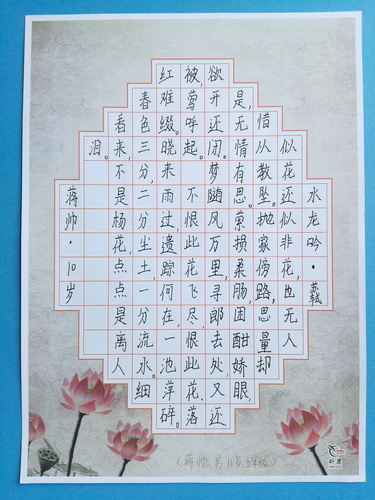 水龙吟·苏轼
似花还似非花,也无人
借从教坠。抛家傍路,思量却
是,无情有思。萦损柔肠,困酣娇眼,
欲开还闭。梦随风万里,寻郎去处又还
被,莺呼起。不恨此花飞尽,恨此花、落
红难缀。晓来雨过,遗踪何在,一池萍碎。
春色三分,二分尘土一分流水。细
看来,不是杨花,点点是离人
泪。
蒋帅·10岁
(蒋帅 男 10岁 五年级)